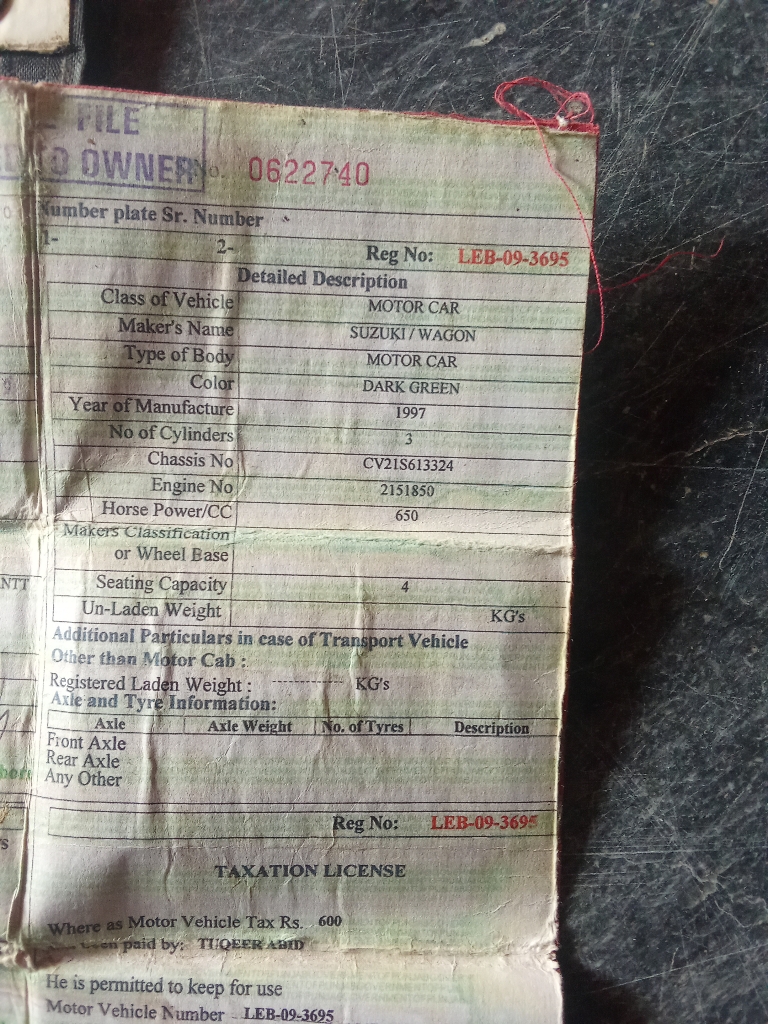 FILE
TO OWNER
No. 0622740
Number plate Sr. Number
1- 2- Reg No: LEB-09-3695
Detailed Description
Class of Vehicle MOTOR CAR
Maker's Name SUZUKI / WAGON
Type of Body MOTOR CAR
Color DARK GREEN
Year of Manufacture 1997
No of Cylinders 3
Chassis No CV21S613324
Engine No 2151850
Horse Power/CC 650
Makers Classification
or Wheel Base
Seating Capacity 4
Un-Laden Weight KG's
Additional Particulars in case of Transport Vehicle
Other than Motor Cab :
Registered Laden Weight : ------------ KG's
Axle and Tyre Information:
Axle Axle Weight No. of Tyres Description
Front Axle
Rear Axle
Any Other
Reg No: LEB-09-3695
TAXATION LICENSE
Where as Motor Vehicle Tax Rs. 600
been paid by: TUQEER ABID
He is permitted to keep for use
Motor Vehicle Number LEB-09-3695